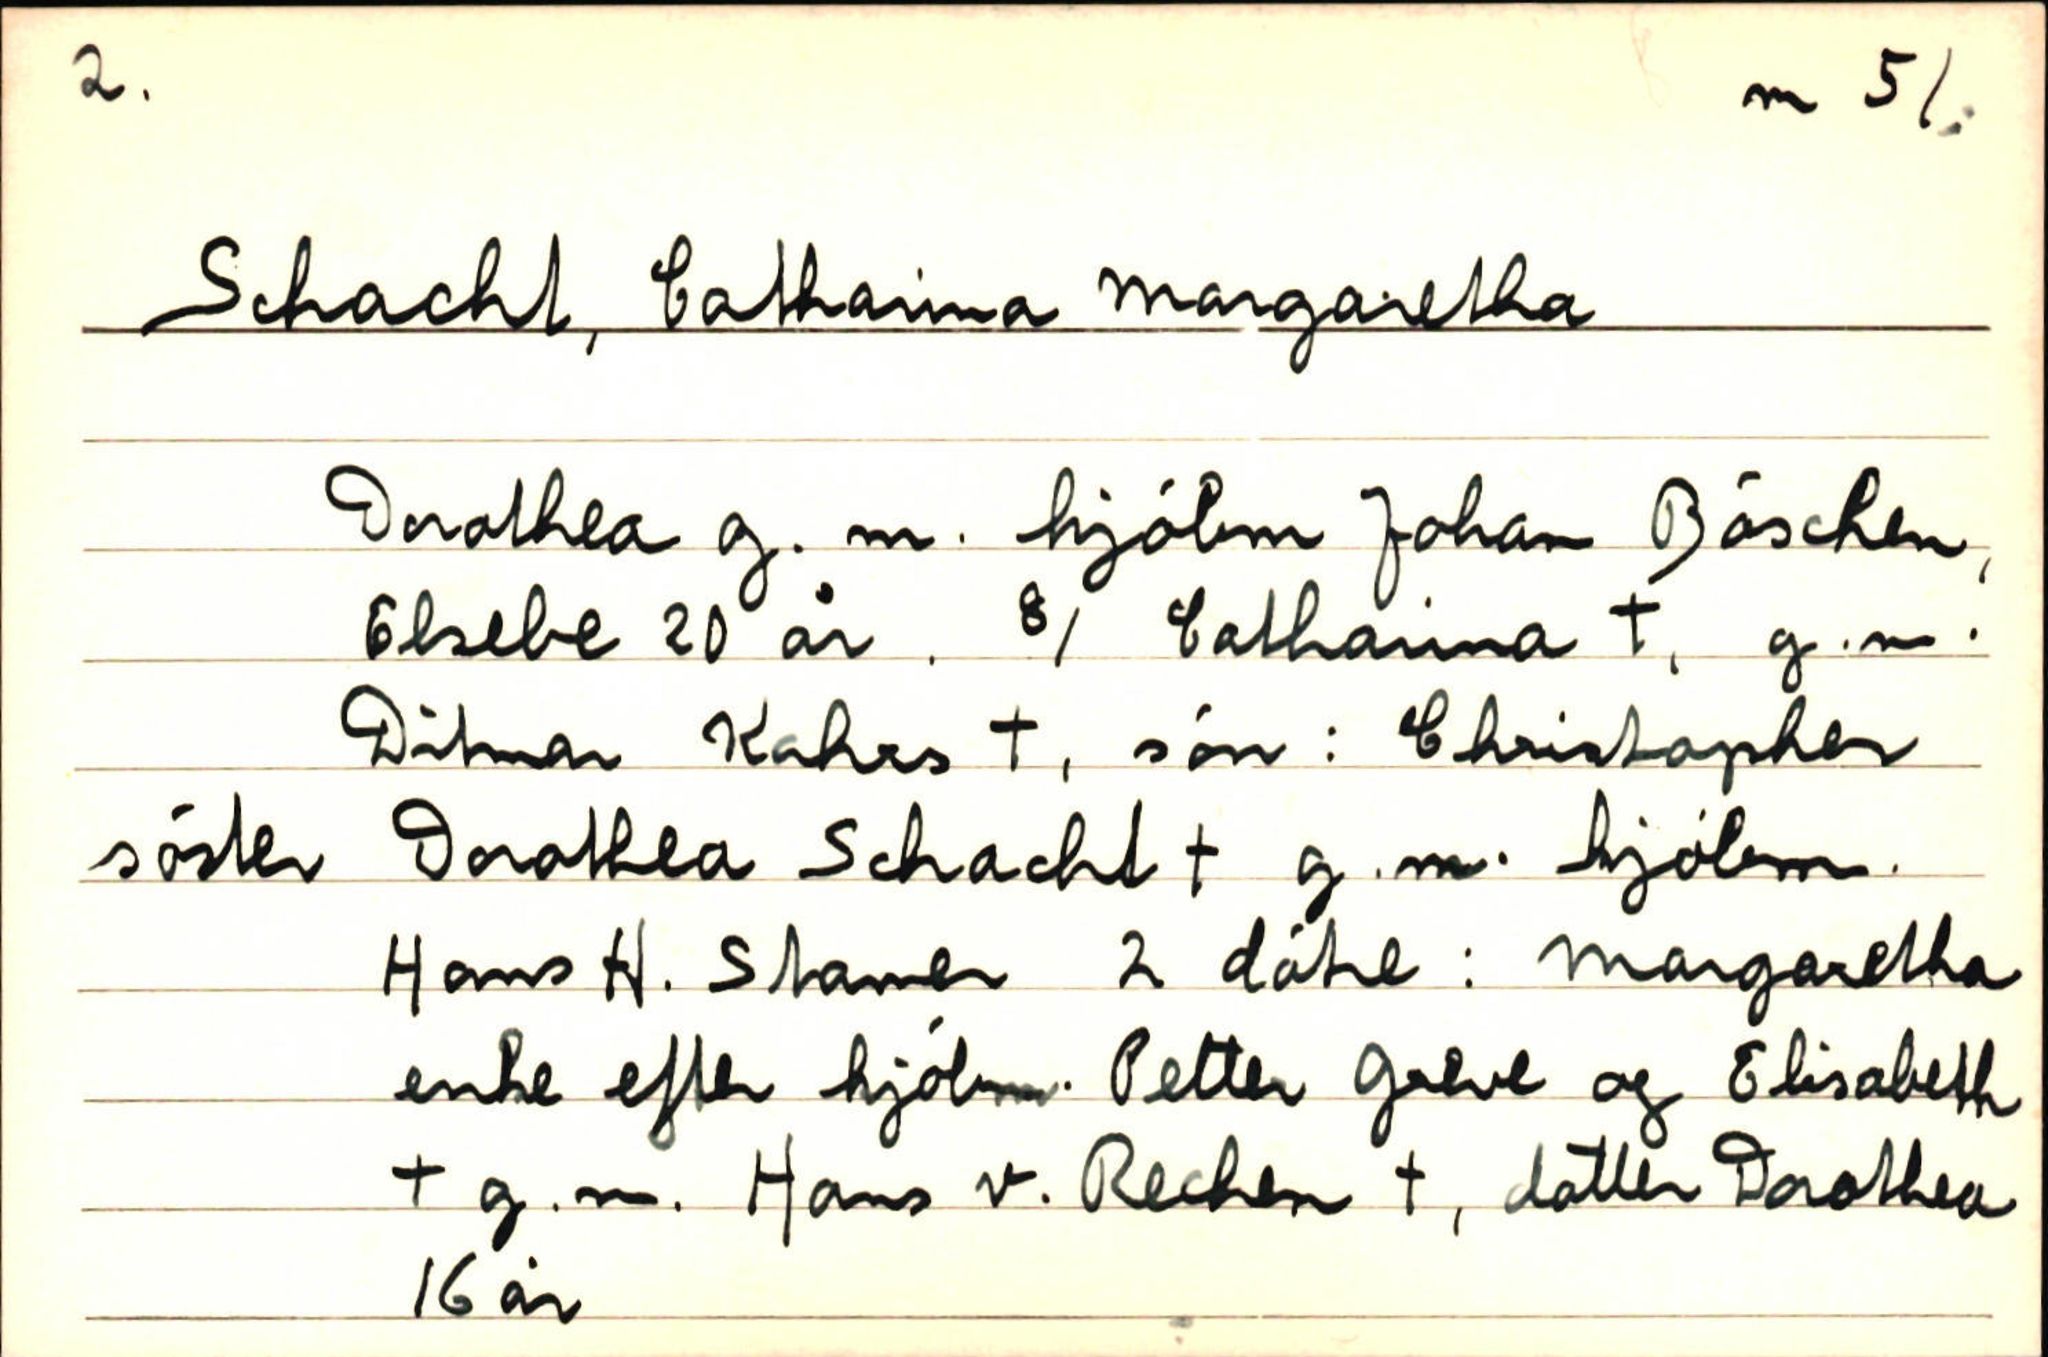 2.
m 51.
Schacht, Catharina Margaretha
Dorothea g. m. hjólsm Johan Böschen,
Elsebe 20 år. 8/ Catharina †, g.m.
Ditmar Kahrs †, són: Christopher
sóster Dorothea Schacht † g.m. hjólsm.
Hans H. Stamer 2 dótre: Margaretha
enke efter hjólsm. Petter Greve og Elisabeth
† g.m. Hans v. Rechen †, datter Dorothea
16 år